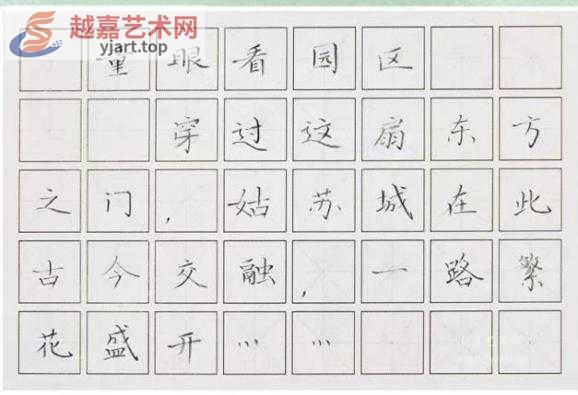 越嘉艺术网
yjart.top
童眼看园区
穿过这扇东方
之门，姑苏城在此
古今交融，一路繁
花盛开……